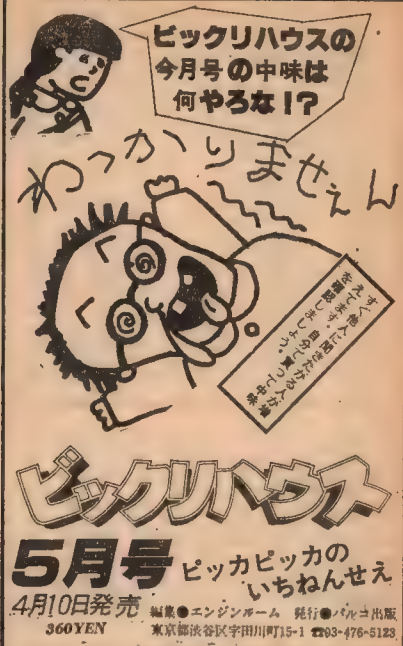 ビックリハウスの
今月号の中味は
何やろな!?
わっかりませぇん
すぐ他人に聞きたがる人が増
えてます。自分で買って中味
を確認しましょう。
ビックリハウス
5月号
ピッカピッカの
いちねんせえ
4月10日発売
360YEN
編集●エンジンルーム 発行●パルコ出版
東京都渋谷区宇田川町15-1 ☎03-476-5123